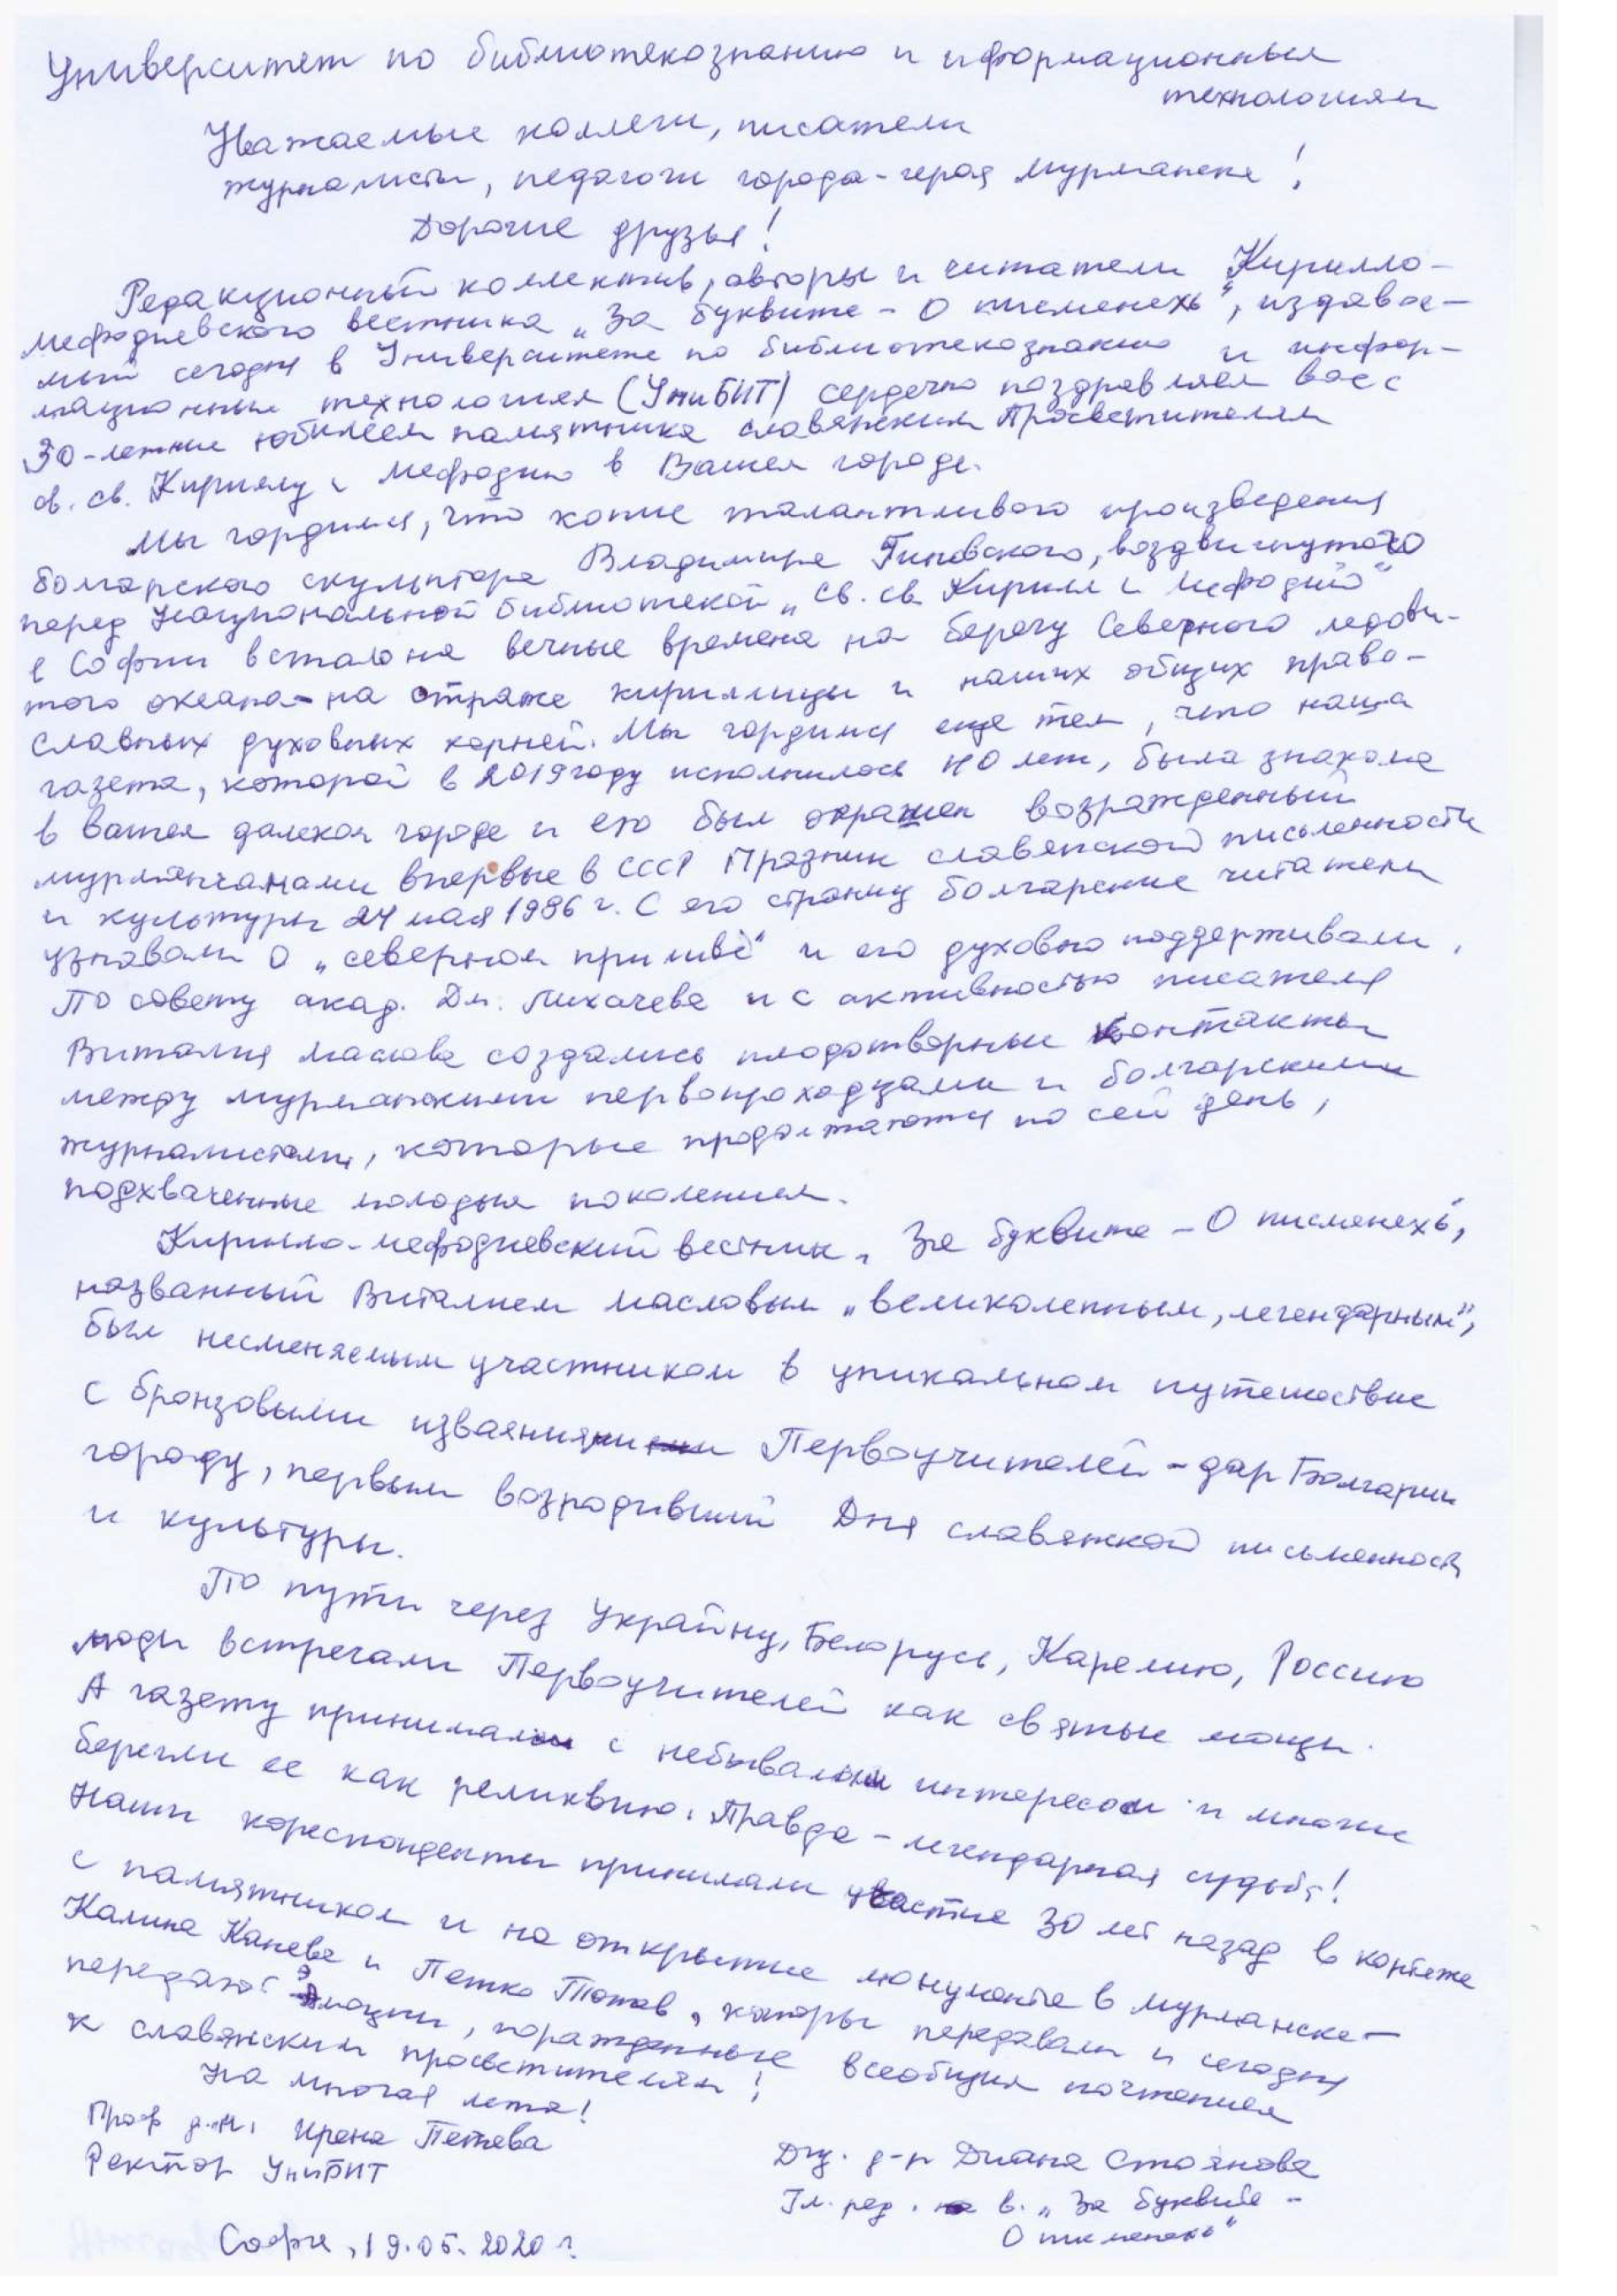 Университет по библиотекознанию и иформационным
технологиям
Уважаемые коллеги, писатели
журналисты, педагоги города-героя Мурманска!
Дорогие друзья!
Редакционный коллектив, авторы и читатели Кирилло-
мефодиевского вестника „За буквите - О писменехь", издавае-
мый сегодня в Университете по библиотекознанию и инфор-
мационным технологиям (УниБИТ) сердечно поздравляем вас с
30-летние юбилеем памятника славянским Просветителям
св. св. Кириллу и Мефодию в Вашем городе.
Мы гордимся, что копие талантливого произведения
болгарского скульптора Владимира Гиновского, воздвигнутого
перед Национальной библиотекой „Св. св. Кирилл и Мефодий"
в Софии встало на вечные времена на берегу Северного ледови-
того океана - на страже кириллицы и наших общих право-
славных духовных корней. Мы гордимся еще тем, что наша
газета, которой в 2019 году исполнилось 40 лет, была знакома
в вашем далеком городе и ею был возражденный
мурманчанами впервые в СССР Празник славянской письменности
и культуры 24 мая 1986 г. С его страниц болгарские читатели
узнавали о „северном приливе" и его духовно поддерживали.
По совету акад. Дм. Лихачева и с активностью писателя
Виталия Маслова создались плодотворные контакты
между мурманскими первопроходцами и болгарскими
журналистами, которые продолжаются по сей день,
подхваченные молодым поколением.
Кирилло-мефодиевский вестник „За буквите - О писменехь",
названный Виталием Масловым „великолепным, легендарным",
был несменяемым участником в уникальном путешествие
с бронзовыми изваяниями Первоучителей - дар Болгарии
городу, первым возродивший Дня славянской письменности
и культуры.
По пути через Украйну, Белорусь, Карелию, Россию
люди встречали Первоучителей как святые мощи.
А газету принимали с небывалым интересом и многие
берегли ее как реликвию. Правда - легендарная судьба!
Наши кореспонденты принимали участие 30 лет назад в кортеже
с памятником и на открытие монумента в Мурманске -
Калина Канева и Петко Тотев, которы передавали и сегодня
передают эмоции, поражденные всеобщим почтением
к славянским просветителям!
На многая лета!
Проф д.н. Ирена Петева
Ректор УниБИТ
Доц. д-р Диана Стоянова
Гл. ред. в. „За буквите -
О писменехь"
София, 19.05.2020 г.